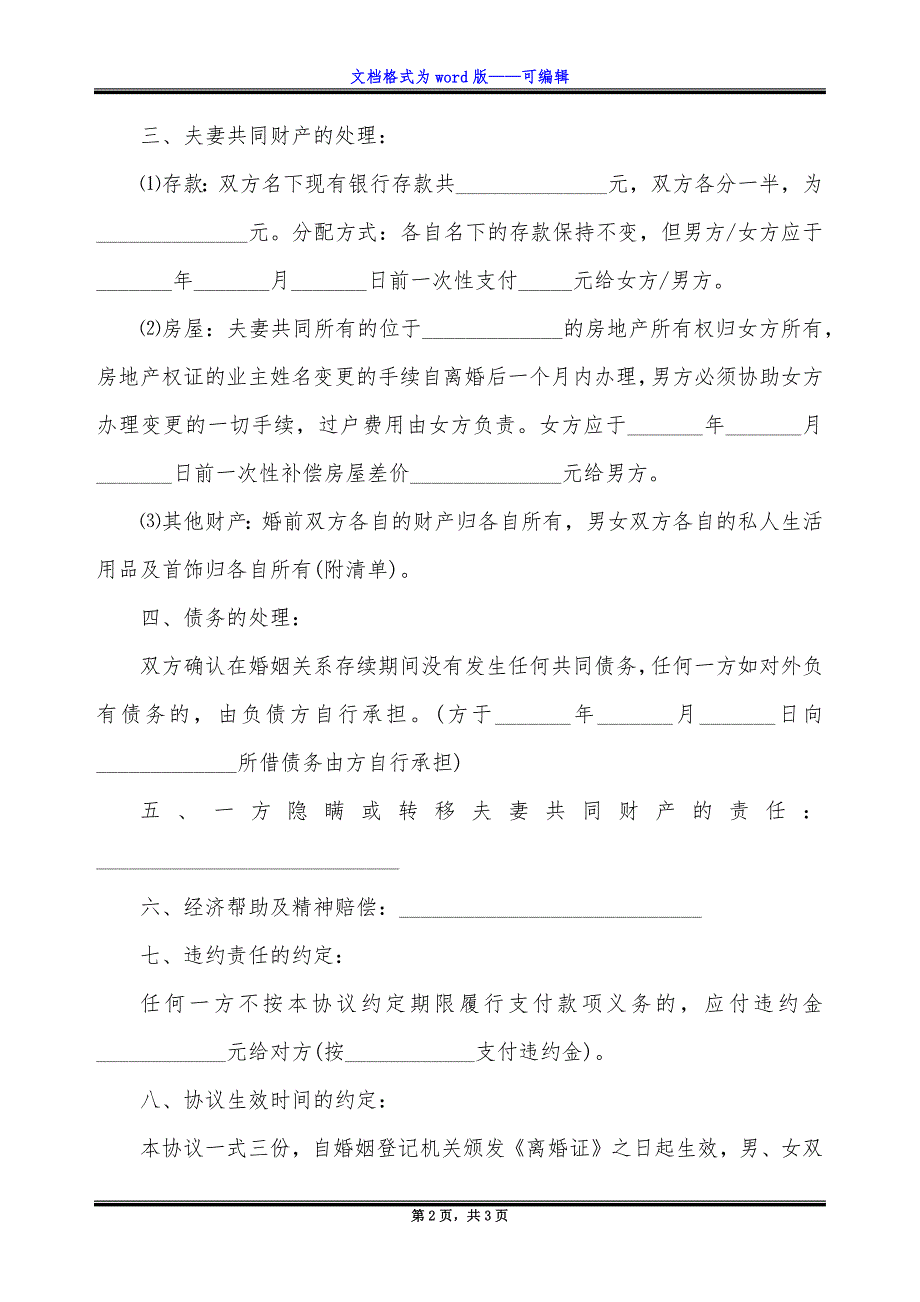 文档格式为 word 版——可编辑
三、夫妻共同财产的处理：
⑴存款：双方名下现有银行存款共______________元，双方各分一半，为
______________元。分配方式：各自名下的存款保持不变，但男方/女方应于
_______年_______月_______日前一次性支付_____元给女方/男方。
⑵房屋：夫妻共同所有的位于_____________的房地产所有权归女方所有，
房地产权证的业主姓名变更的手续自离婚后一个月内办理，男方必须协助女方
办理变更的一切手续，过户费用由女方负责。女方应于_______年_______月
_______日前一次性补偿房屋差价______________元给男方。
⑶其他财产：婚前双方各自的财产归各自所有，男女双方各自的私人生活
用品及首饰归各自所有(附清单)。
四、债务的处理：
双方确认在婚姻关系存续期间没有发生任何共同债务，任何一方如对外负
有债务的，由负债方自行承担。(方于_______年_______月_______日向
_____________所借债务由方自行承担)
五、一方隐瞒或转移夫妻共同财产的责任：
____________________________
六、经济帮助及精神赔偿：____________________________
七、违约责任的约定：
任何一方不按本协议约定期限履行支付款项义务的，应付违约金
____________元给对方(按____________支付违约金)。
八、协议生效时间的约定：
本协议一式三份，自婚姻登记机关颁发《离婚证》之日起生效，男、女双
第 2 页，共 3 页